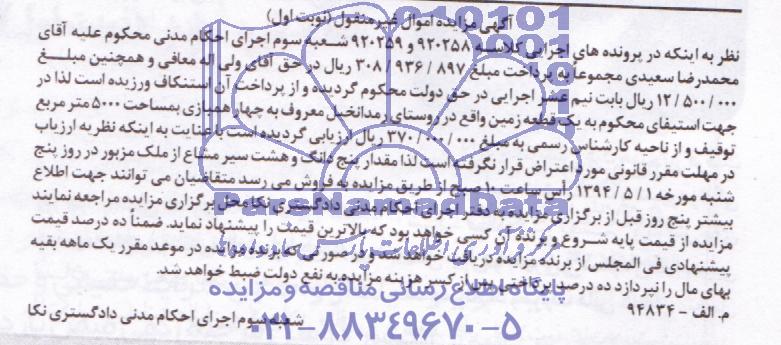 آگهی مزایده اموال غیرمنقول (نوبت اول)
نظر به اینکه در پرونده های اجرایی کلاسه ۹۲۰۲۵۸ و ۹۲۰۲۵۹ شعبه سوم اجرای احکام مدنی محکوم علیه آقای
محمدرضا سعیدی مجموعاً به پرداخت مبلغ ۳۰۸/۹۳۶/۸۹۷ ریال در حق آقای ولی اله معافی و همچنین مبلغ
۱۲/۵۰۰/۰۰۰ ریال بابت نیم عشر اجرایی در حق دولت محکوم گردیده و از پرداخت آن استنکاف ورزیده است لذا در
جهت استیفای محکوم به یک قطعه زمین واقع در روستای رمدانخیل معروف به چهار همیازی بمساحت ۵۰۰۰ متر مربع
توقیف و از ناحیه کارشناس رسمی به مبلغ ۳۷۰/۰۰۰/۰۰۰ ریال ارزیابی گردیده است با عنایت به اینکه نظریه ارزیاب
در مهلت مقرر قانونی مورد اعتراض قرار نگرفته است لذا مقدار پنج دانگ و هشت سیر مشاع از ملک مزبور در روز پنج
شنبه مورخه ۱۳۹۴/۵/۱ راس ساعت ۱۰ صبح از طریق مزایده به فروش می رسد متقاضیان می توانند جهت اطلاع
بیشتر پنج روز قبل از برگزاری مزایده به دفتر اجرای احکام مدنی دادگستری نکا محل برگزاری مزایده مراجعه نمایند
مزایده از قیمت پایه شروع و برنده آن کسی خواهد بود که بالاترین قیمت را پیشنهاد نماید. ضمناً ده درصد قیمت
پیشنهادی فی المجلس از برنده مزایده دریافت خواهد شد و در صورتی که برنده مزایده در موعد مقرر یک ماهه بقیه
بهای مال را نپردازد ده درصد پرداختی پس از کسر هزینه مزایده به نفع دولت ضبط خواهد شد.
م.الف - ۹۴۸۳۴
شعبه سوم اجرای احکام مدنی دادگستری نکا
ParsNamadData
پایگاه اطلاع رسانی مناقصه و مزایده
۰۲۱-۸۸۳۴۹۶۷۰-۵